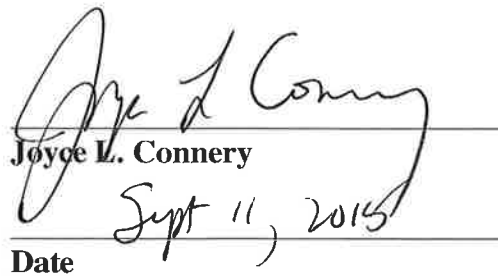 Joyce L Connery
Joyce L. Connery
Sept 11, 2015
Date